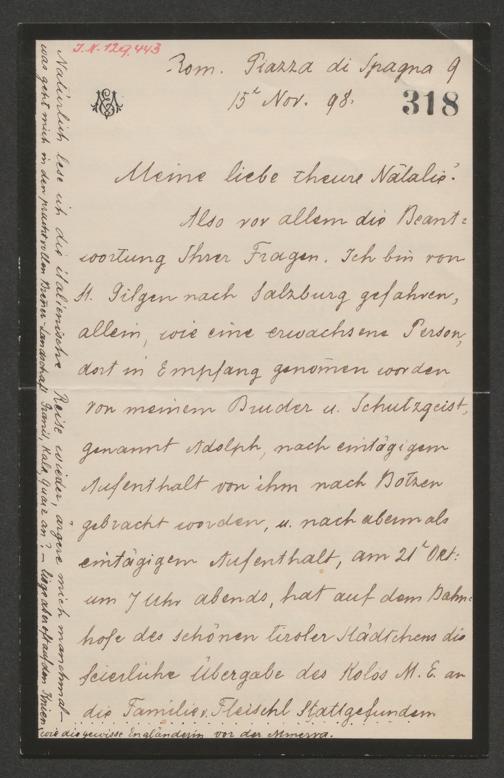 J. N. 129.443
Rom. Piazza di Spagna 9
15t Nov. 98.
318
Meine liebe theure Natalie!
Also vor allem die Beant=
wortung Ihrer Fragen. Ich bin von
St. Gilgen nach Salzburg gefahren,
allein, wie eine erwachsene Person,
dort in Empfang genom̄en worden
von meinem Bruder u. Schutzgeist,
genannt Adolph, nach eintägigem
Aufenthalt von ihm nach Botzen
gebracht worden, u. nach abermals
eintägigem Aufenthalt, am 21t Okt:
um 7 Uhr abends, hat auf dem Bahn=
hofe des schönen tiroler Städtchens die
feierliche Übergabe des Kolos M. E. an
die Familie v. Fleischl stattgefunden
Natürlich lese ich die italienische Reise wieder, ärgere mich manchmal –
was geht mich in den prachtvollen Brenner-Landschaft Granit, Kalk, Quarz an? – liege aber oft auf den Knien
wie die gewisse Engländerin vor der Minerva.